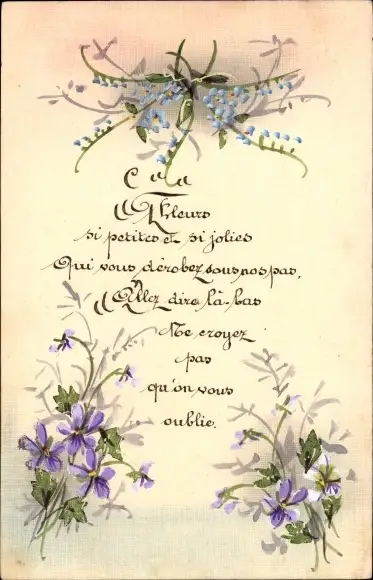 Fleurs
si petites et si jolies
Qui vous dérobez sous nos pas,
Allez dire là-bas
Ne croyez
pas
qu'on vous
oublie.